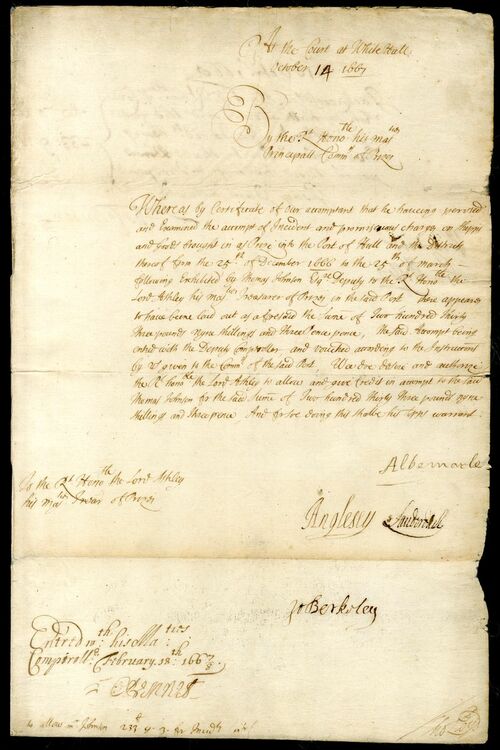 At the Court at White Hall
October 14 1667
By the Rt Hono:ble his Mats
Principall Comrs of Prizes
Whereas by Certificate of our accomptant that he haveing perused
and Examined the accompt of Incident and promiscuous charges on shipps
and goods brought in as Prize into the Port of Hull and the districts
thereof from the 25th of December 1666 to the 25th of march
following Exhibited by Thomas Johnson Esqre Deputy to the Rt Hono:ble the
Lord Ashley his Maties Treasurer of Prizes in the said Port There appeares
to have beene laid out as aforesaid the sume of Two hundred thirty
Three pounds nyne shillings and three pence, The said Accompt being
entred with the Deputy Comptroller and vouched according to the Instructions
by us given to the Comrs of the said Port. Wee doe desire and authorize
the Rt Hono:ble the Lord Ashley to allow and give Credit in accompt to the said
Thomas Johnson for the said sume of Two hundred thirty three pound nyne
shillings and three pence, And for soe doing this shalbe his Lopps warrant.
Albemarle
To the Rt Hono:ble the Lord Ashley
his Maties Trear of Prizes
Anglesey Lauderdaill
Jo Berkeley
Entred wth: his Maties
Comptrolle: February 18th: 1667/8.
to allow mr Johnson 233 9 3 for Incidts